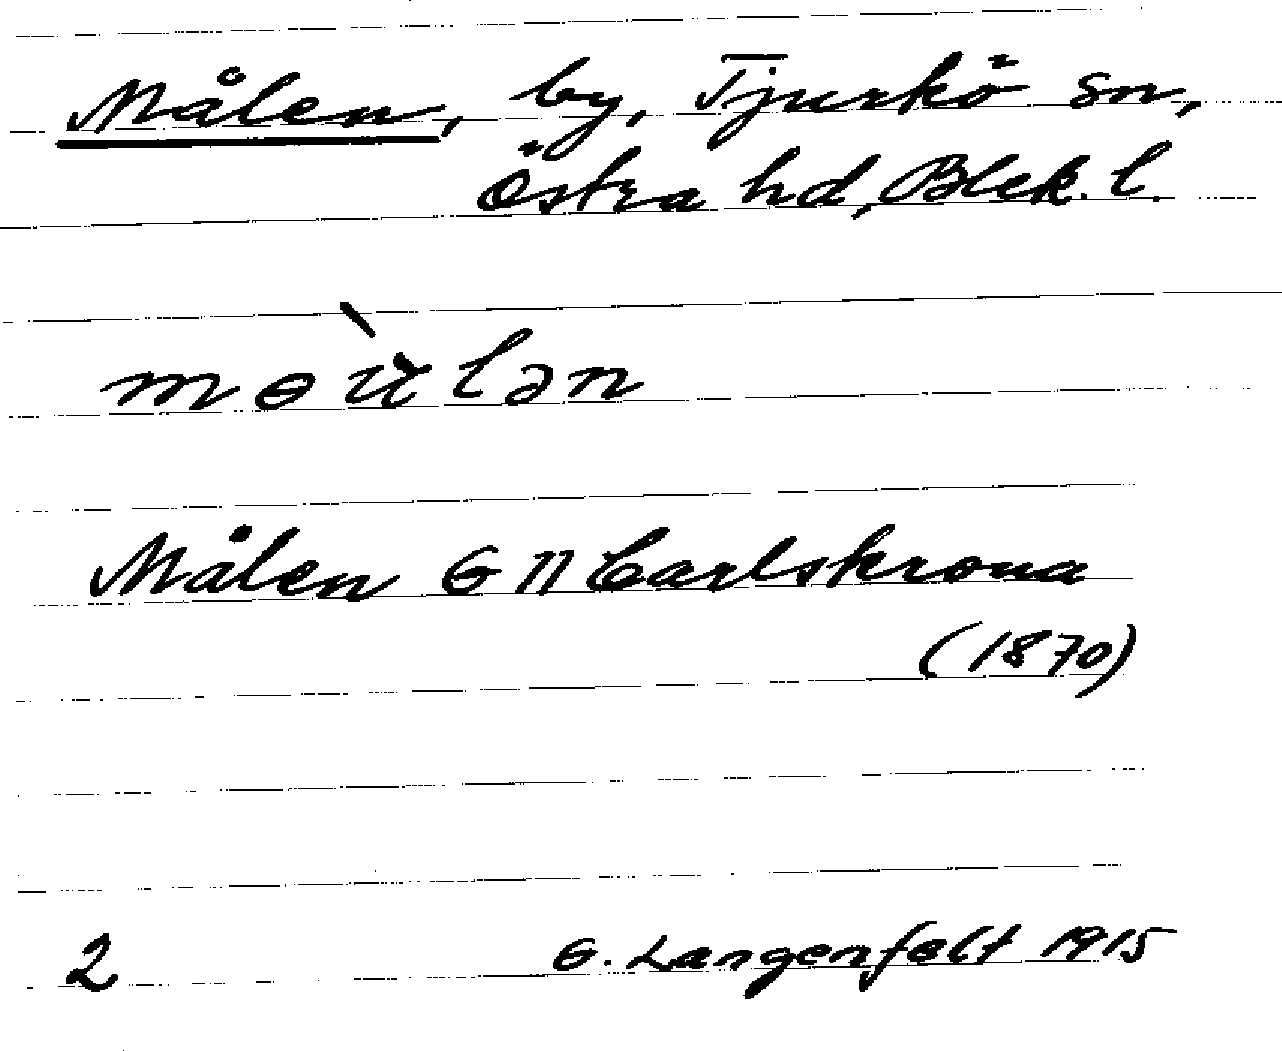 Målen, by, Tjurkö sn,
Östra hd, Blek. l.
Målen G II Carlskrona
(1870)
2 G. Langenfelt 1915